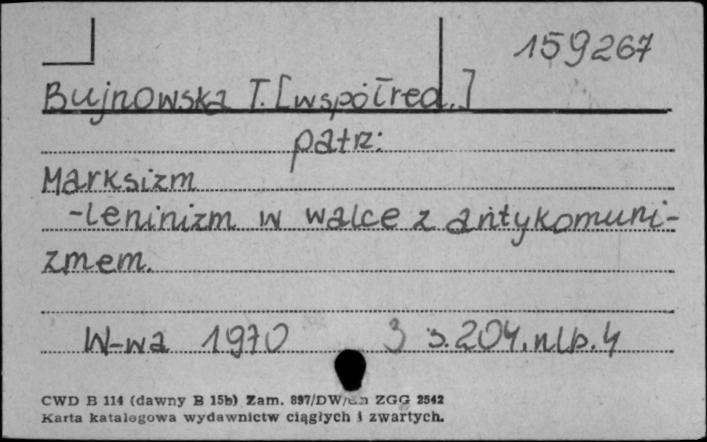 159267
Bujnowska T. [współred.]
patrz:
Marksizm
-leninizm w walce z antykomuni-
zmem.
W-wa 1970 3 s. 204, nlb. 4
CWD B 114 (dawny B 15b) Zam. 897/DW/ ZGG 2542
Karta katalogowa wydawnictw ciągłych i zwartych.